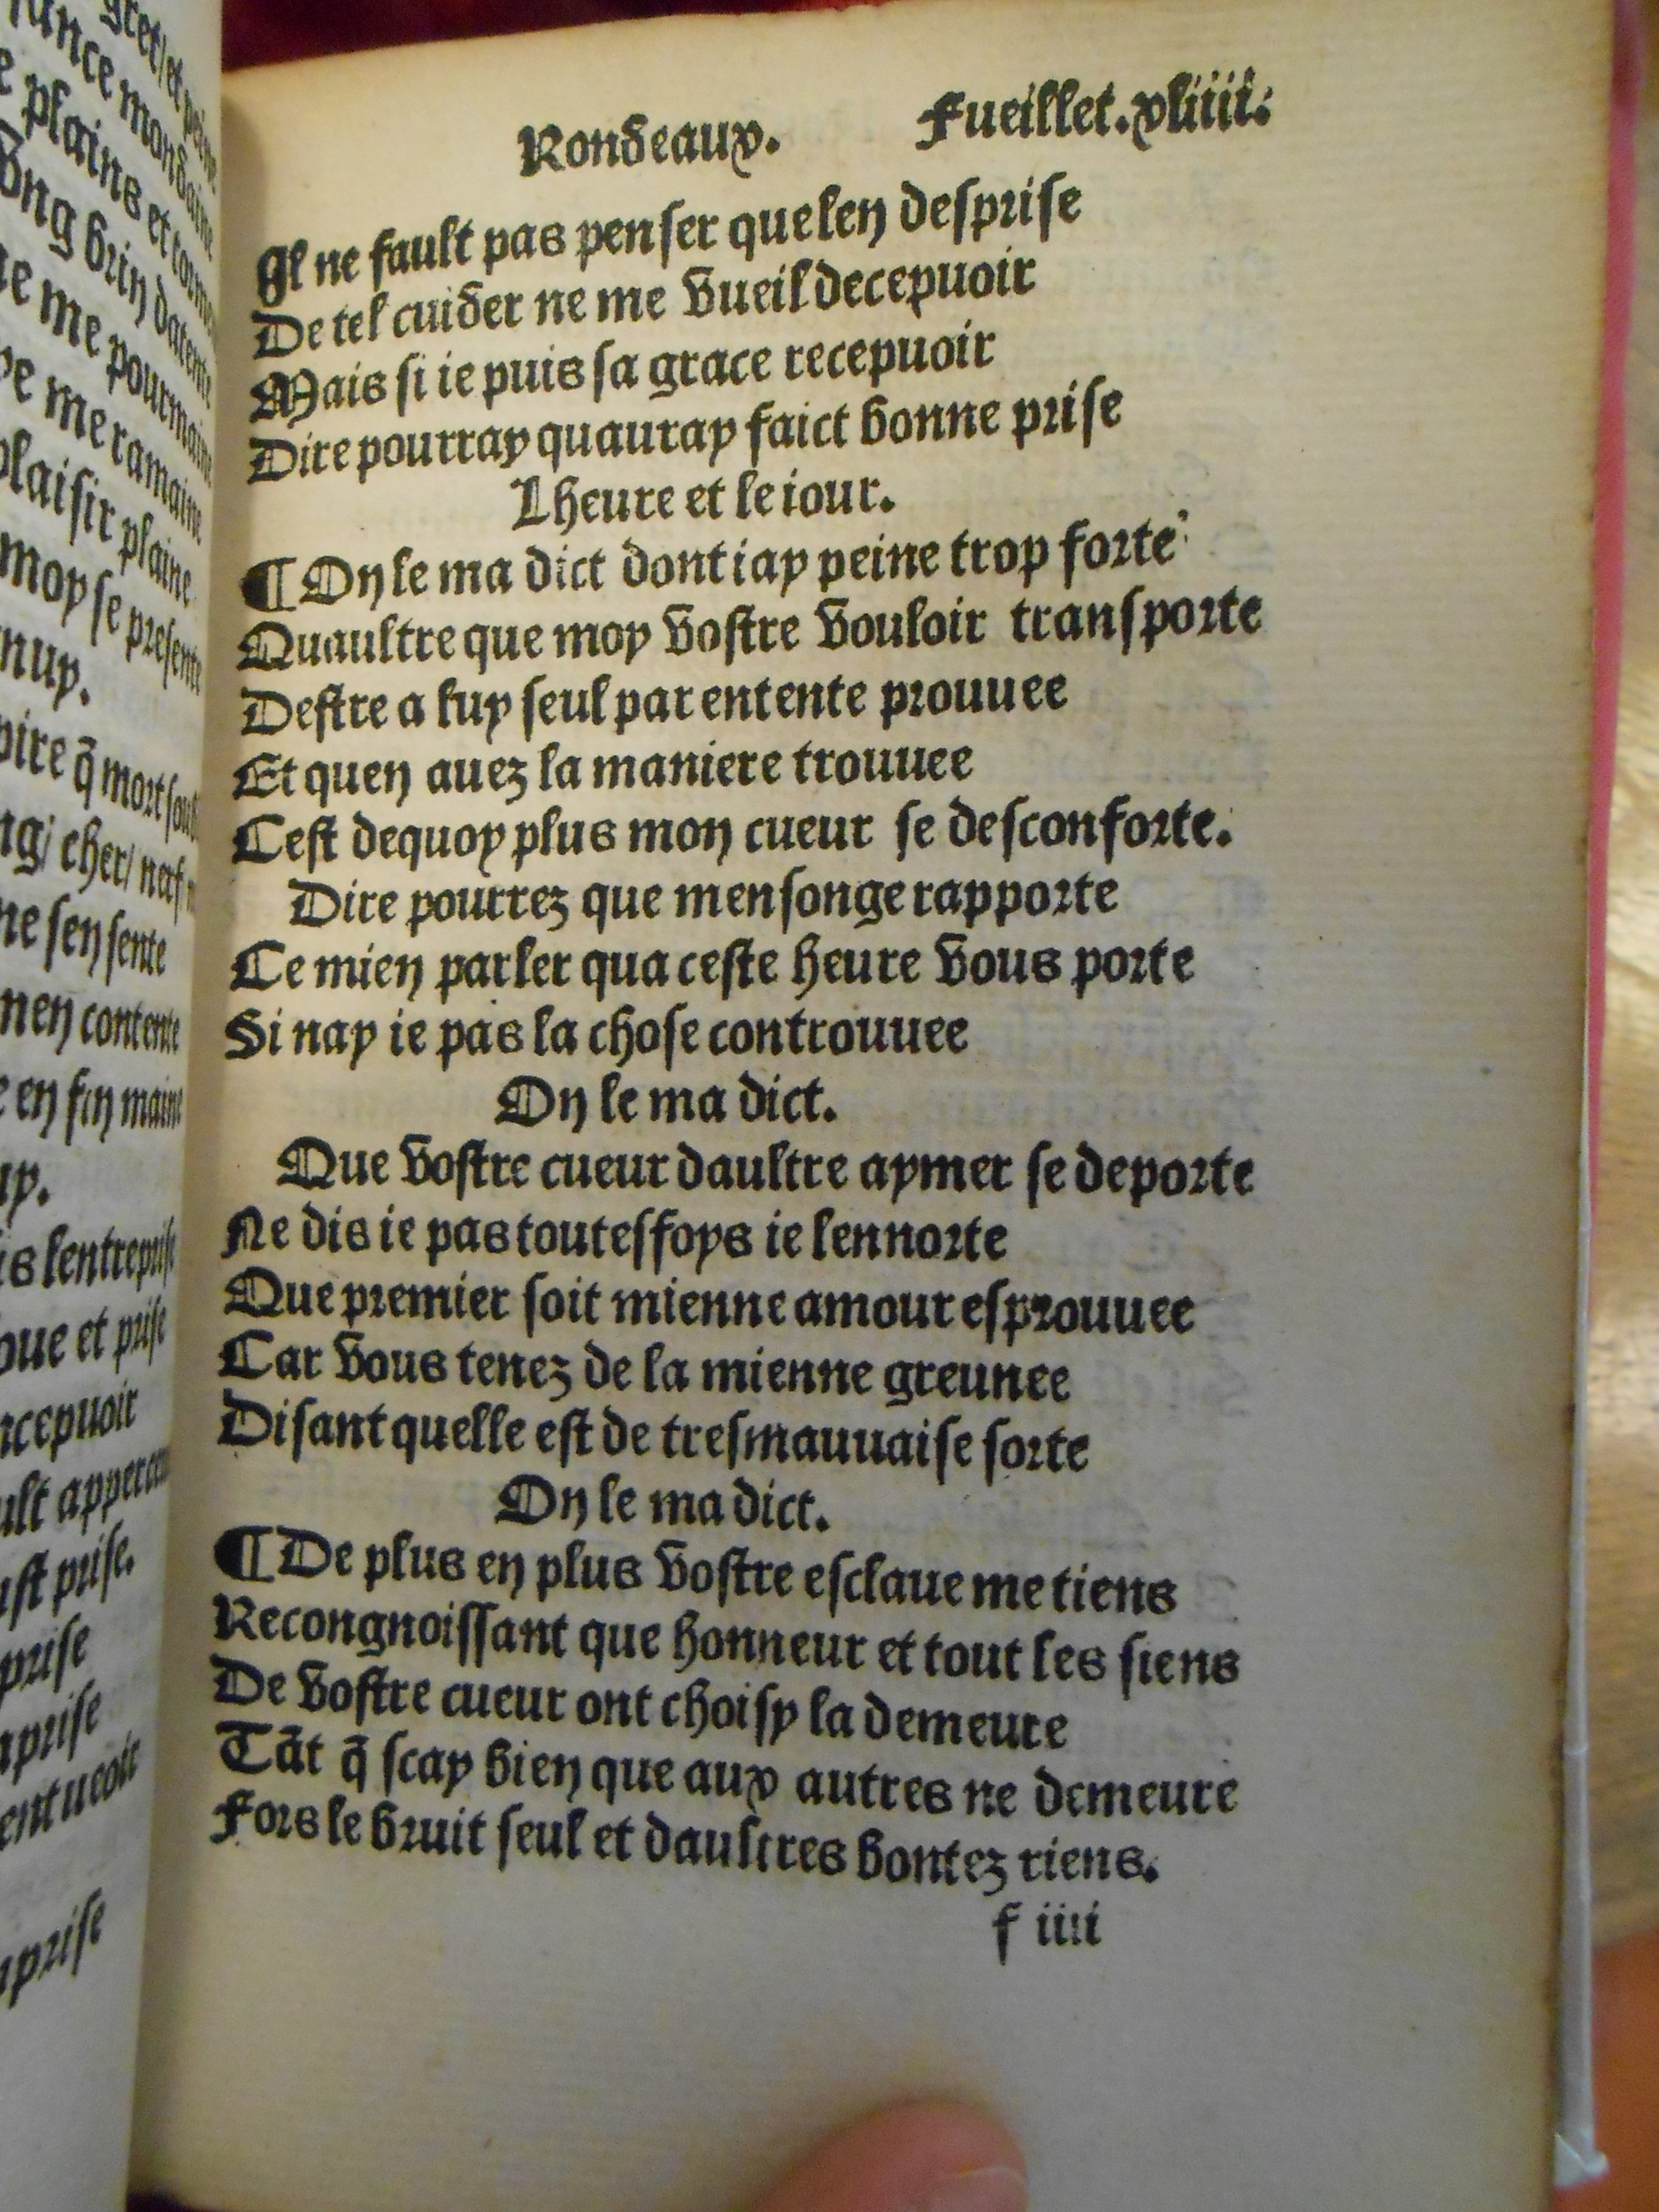 gret/et peine
nce mondaine
e plains et tourm
Ung brin datente
e me pourmaine
me ramaine
plaisir plaine
moy se presente
nuy.
oire q̄ mort
ng/ cher/ nerf
ne sen sente
nen contente
e en fin maine
uy.
is lentreprise
oue et prise
cepuoir
ult
est prise.
prise
aprise

aprise
Rondeaux. Fueillet.xliiii.
Il ne fault pas penser que len desprise
De tel cuider ne me vueil decepuoir
Mais si ie puis sa grace recepuoir
Dire pourray quauray faict bonne prise
Lheure et le iour.
¶ On le ma dict dont iay peine trop forte
Quaultre que moy vostre vouloir transporte
Destre a luy seul par entente prouuee
Et quen auez la maniere trouuee
Cest dequoy plus mon cueur se desconforte.
Dire pourrez que mensonge rapporte
Ce mien parler qua ceste heure vous porte
Si nay ie pas la chose controuuee
On le ma dict.
Que vostre cueur daultre aymer se deporte
Ne dis ie pas toutesfoys ie lennorte
Que premier soit mienne amour esprouuee
Car vous tenez de la mienne greunee
Disant quelle est de tresmauuaise sorte
On le ma dict.
¶ De plus en plus vostre esclaue me tiens
Recongnoissant que honneur et tout les siens
De vostre cueur ont choisy la demeure
Tāt q̄ scay bien que aux autres ne demeure
Fors le bruit seul et daultres bontez riens.
f iiii